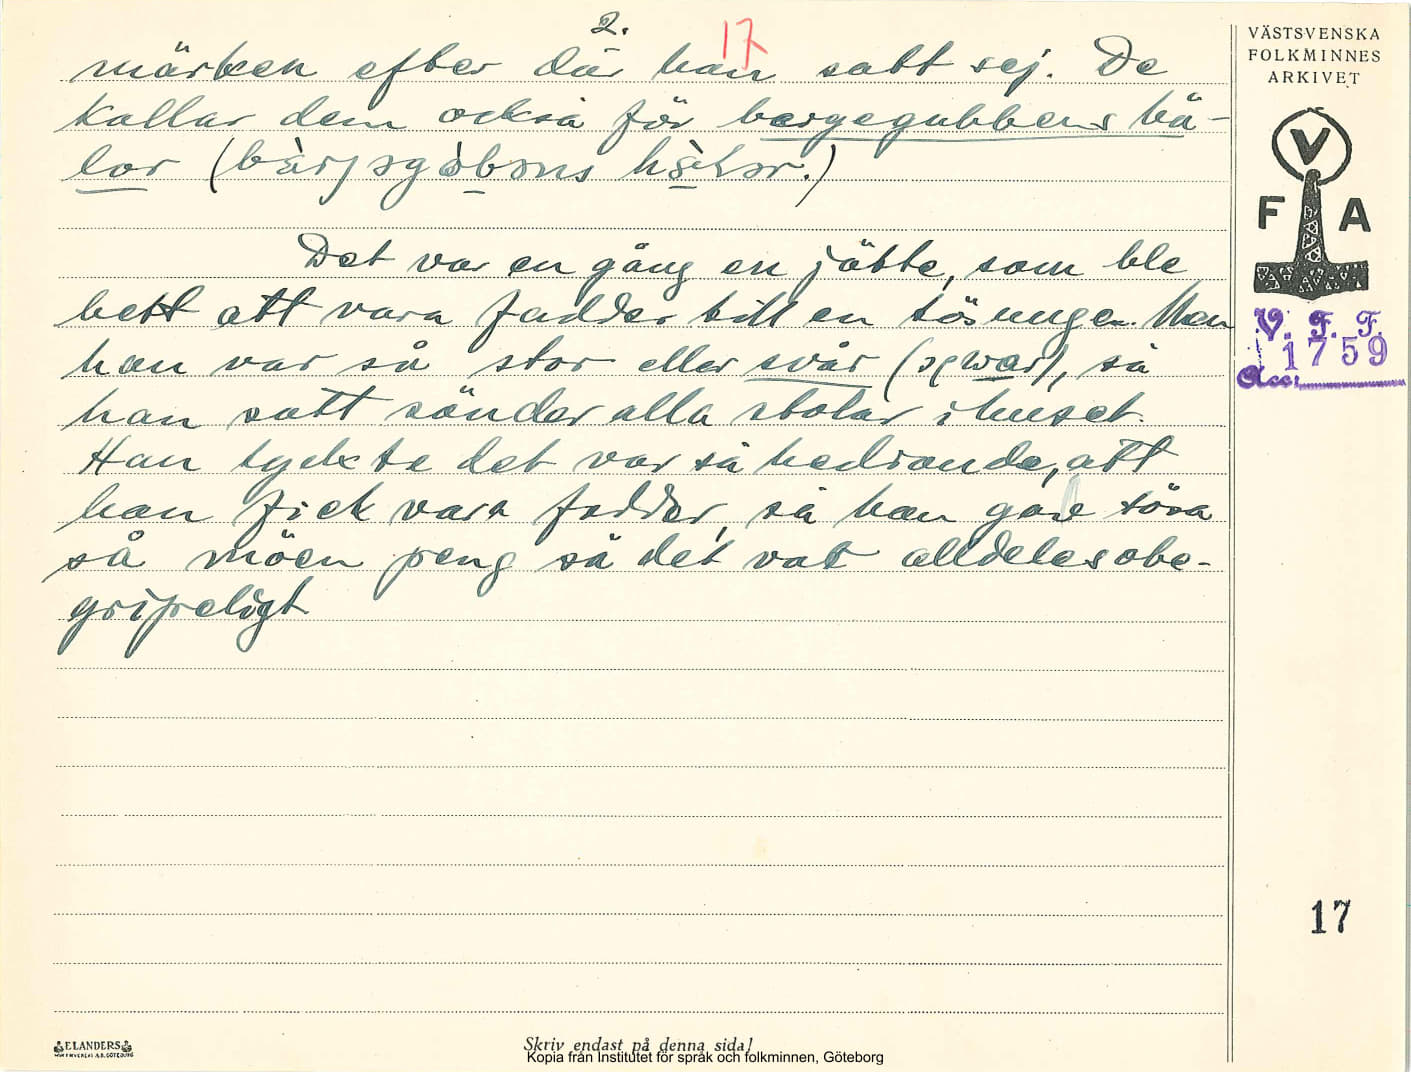 2.
17
märken efter där han satt sej. De
kallar dem också för bergegubbens hä-
lor
Det var en gång en jätte, som ble
bett att vara fadder till en tösunge. Men
han var så stor eller svår, så
han satt sönder alla stolar i huset.
Han tyckte det var så hedrande, att
han fick vara fadder, så han gav tösa
så möen peng så det vat alldeles obe-
gripeligt
VÄSTSVENSKA
FOLKMINNES
ARKIVET
V
F A
V. F. F.
1759
Acc:
17
ELANDERS
Skriv endast på denna sida!
Kopia från Institutet för språk och folkminnen, Göteborg